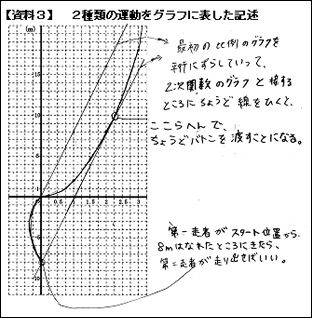 【資料３】　２種類の運動をグラフに表した記述
(m)
最初の比例のグラフを
平行にずらしていって、
2次関数のグラフと接する
ところにちょうど線をひくて、
ここらへんで、
ちょうどバトンを渡すことになる。
0 0.5 1 1.5 2 2.5 3
第一走者がスタート位置から
8mはなれたところにきたら、
第二走者が走り出せばいい。